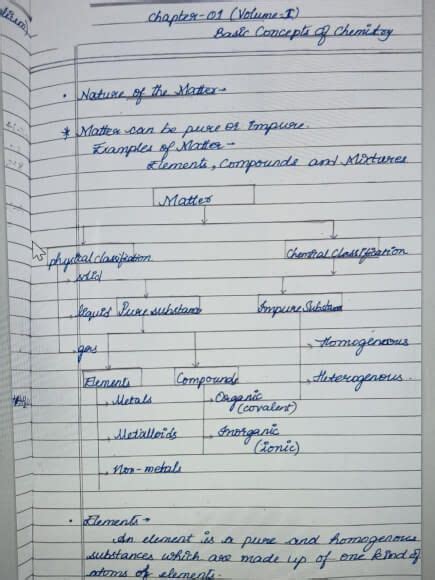 Chapter-01 (Volume-I)
Basic Concepts of Chemistry
• Nature of the Matter-
* Matter can be pure or impure.
Examples of Matter-
Elements, Compounds and Mixtures
Matter
physical classification
Chemical Classification
solid
liquid
Pure substance
Impure Substance
gas
Homogenous
Elements
Compounds
Heterogenous.
Metals
Organic
(covalent)
Metalloids
Inorganic
(ionic)
Non-metals
• Elements-
An element is a pure and homogenous
substances which are made up of one kind of
atoms of elements.